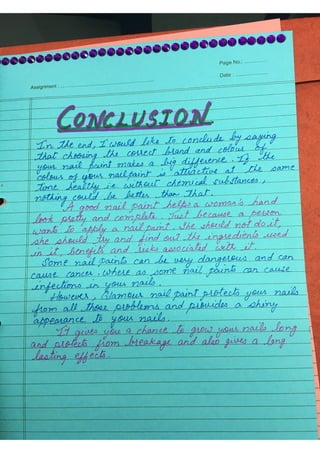 Page No.:
Date :
Assignment
CONCLUSION
In the end, I would like to conclude by saying
that choosing the correct brand and colour of
your nail paint makes a big difference. If the
colour of your nail paint is attractive at the same
tone healty i.e. without chemical substances,
nothing could be better than that.
A good nail paint helps a woman's hand
look pretty and complete. Just because a person
wants to apply a nail paint. She should not do it,
she should try and find out the ingredients used
in it, benefits and risks associated with it.
Some nail paints can be very dangerous and can
cause cancer, where as some nail paints can cause
infections in your nails.
However, Glamour nail paint protects your nails
from all those problems and provides a shiny
appearance to your nails.
It gives you a chance to grow your nails long
and protects from breakage and also gives a long
lasting effects.